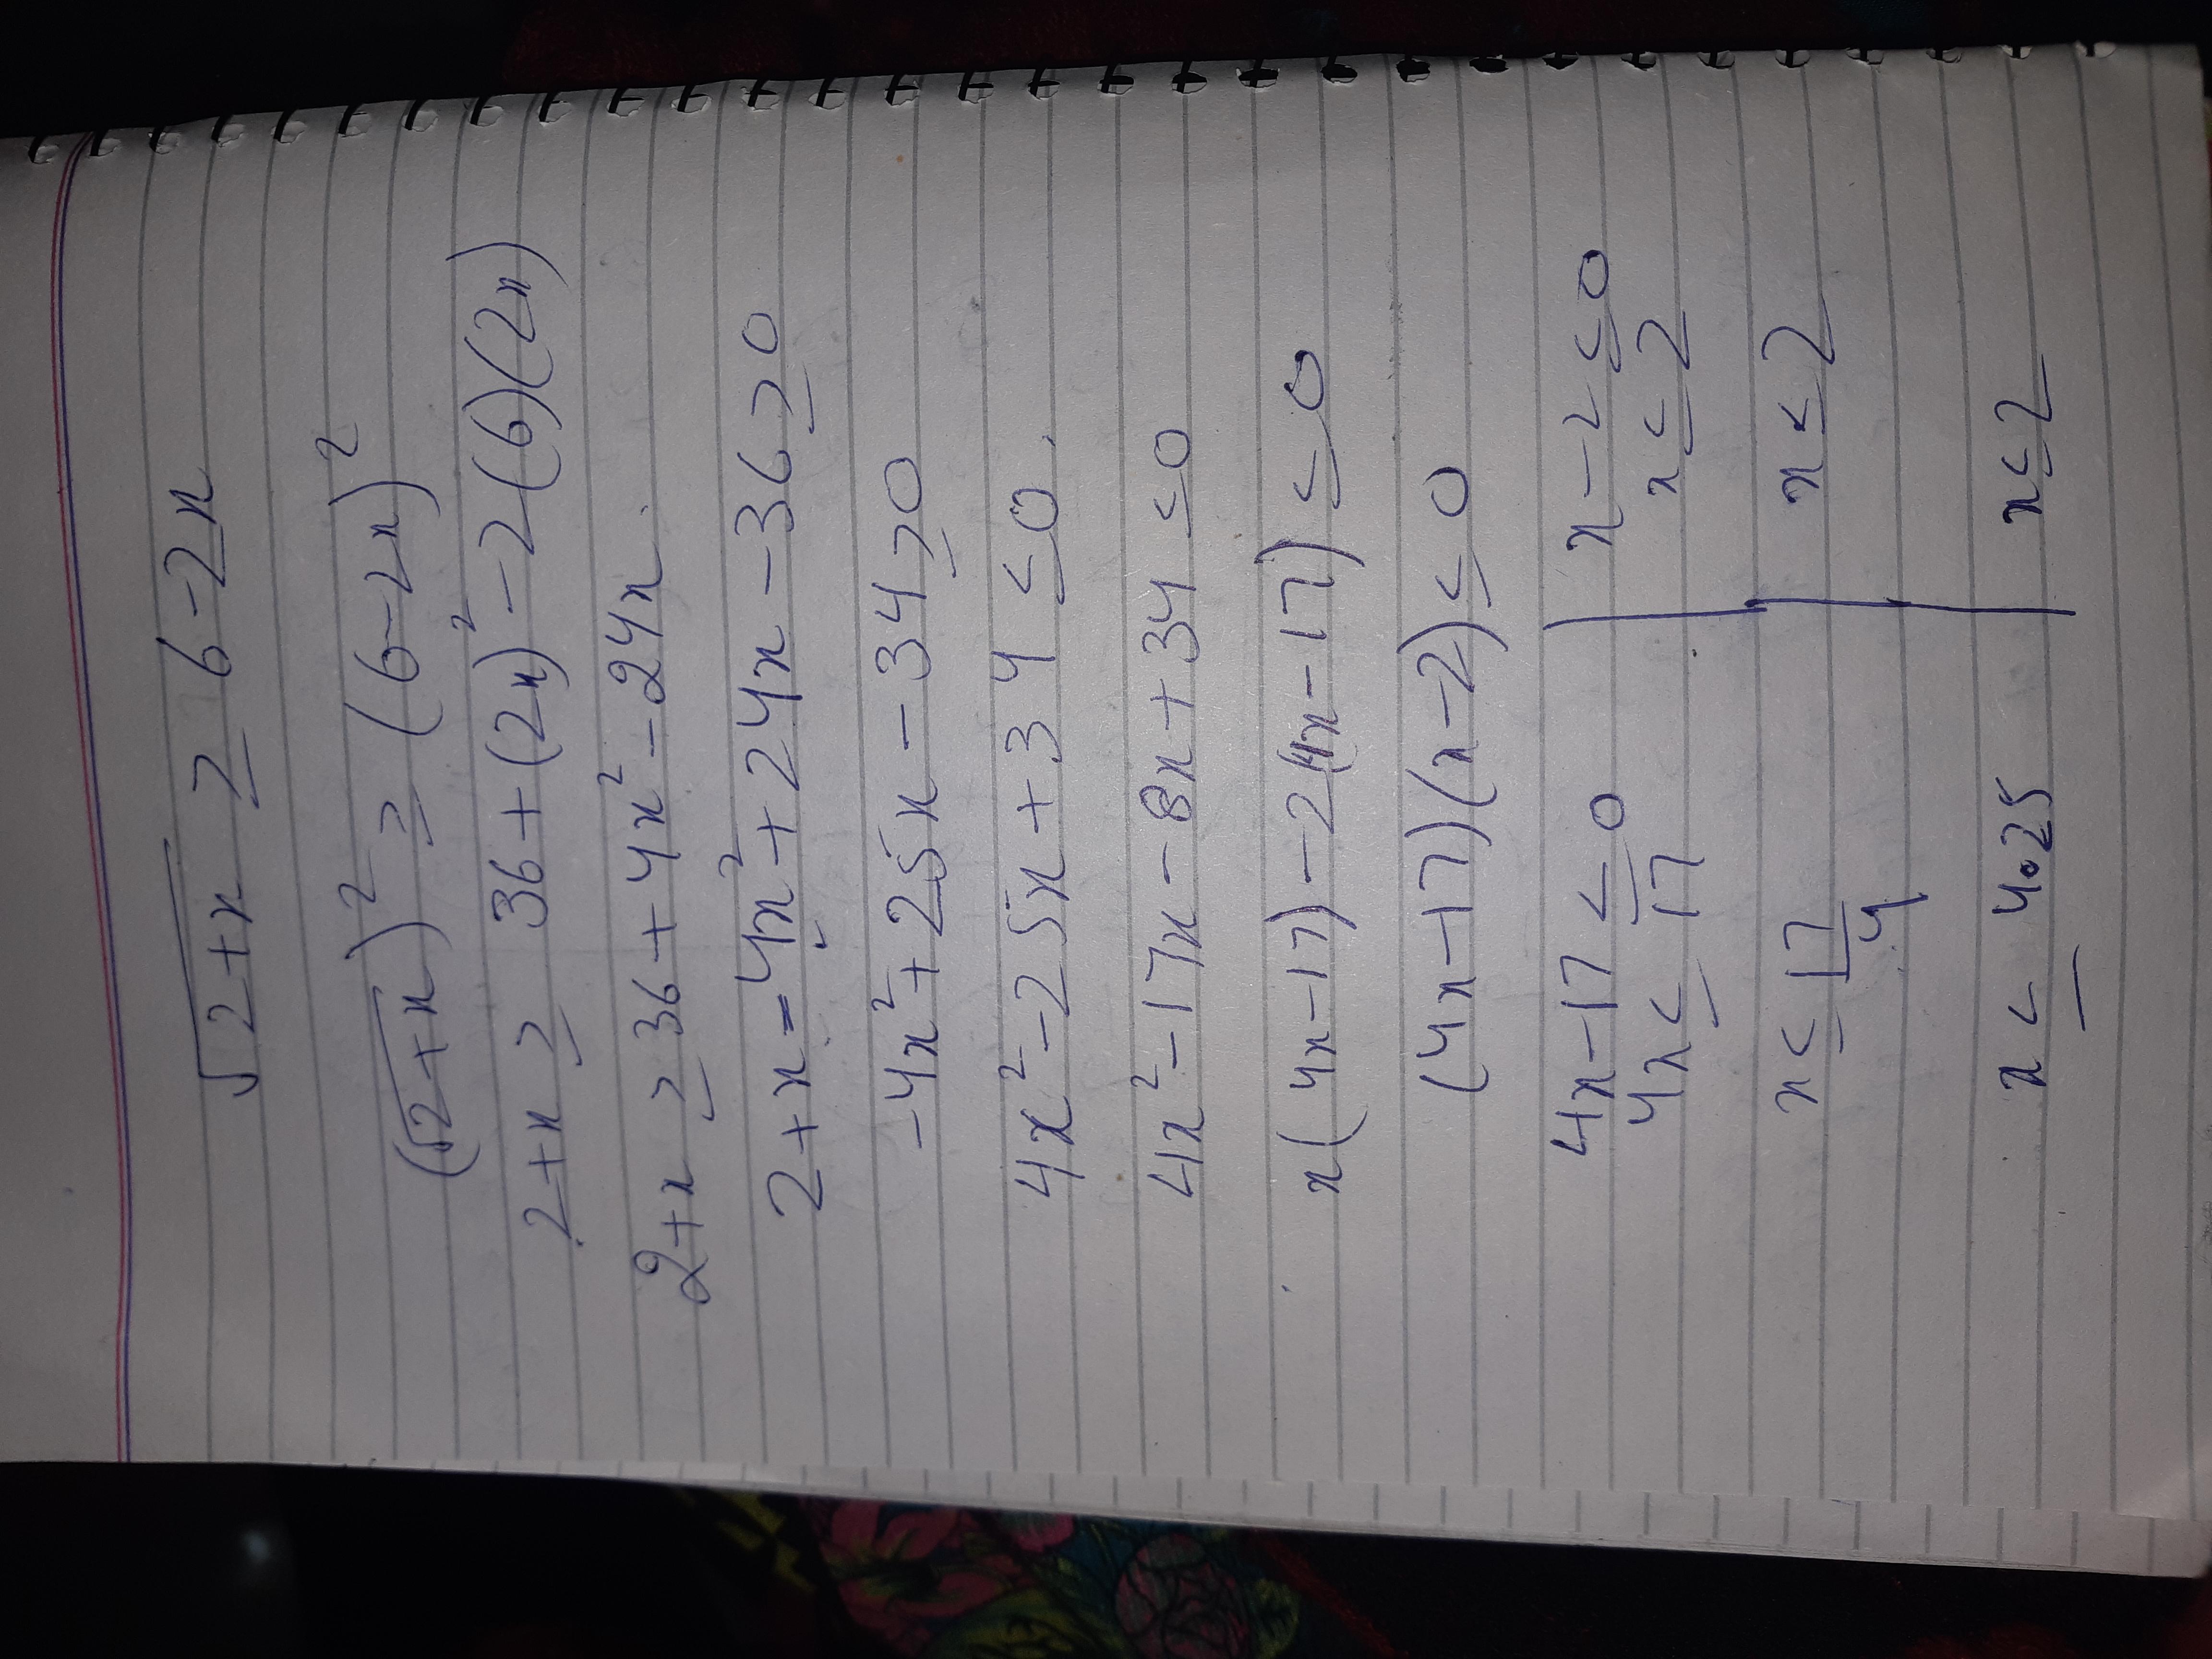 √2+x ≥ 6-2x
(√2+x)² ≥ (6-2x)²
2+x ≥ 36+(2x)²-2(6)(2x)
2+x ≥ 36+4x²-24x.
2+x-4x²+24x-36≥0
-4x²+25x-34≥0
4x²-25x+34≤0.
4x²-17x-8x+34≤0
x(4x-17)-2(4x-17)≤0
(4x-17)(x-2)≤0
4x-17≤0 | x-2≤0
4x≤17 | x≤2
x≤17/4 | x≤2
x≤4.25 | x≤2